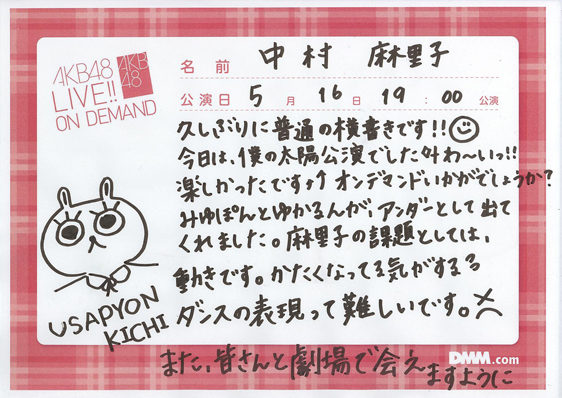 AKB48
LIVE!!
ON DEMAND
AKB
48
名前 中村 麻里子
公演日 5月16日19:00公演
久しぶりに普通の横書きです!!
今日は、僕の太陽公演でした外わ〜いっ!!
楽しかったです♪↑オンデマンドいかがでしょうか?
みゆぽんとゆかるんが、アンダーとして出て
くれました。麻里子の課題としては、
動きです。かたくなってる気がする
ダンスの表現って難しいです。
USAPYON
KICHI
また、皆さんと劇場で会え
ますように
DMM.com